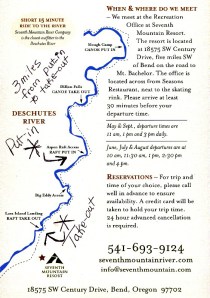 SHORT 15 MINUTE
RIDE TO THE RIVER
Seventh Mountain River Company
is the closest outfitter to the
Deschutes River
2 miles
from put in
to take-out
DESCHUTES
RIVER
Put-in
Slough Camp
CANOE PUT IN
Dillon Falls
CANOE TAKE OUT
Aspen Boat Access
RAFT PUT IN
Big Eddy Access
Lava Island Landing
RAFT TAKE OUT
Take-out
SEVENTH
MOUNTAIN
RESORT
WHEN & WHERE DO WE MEET
– We meet at the Recreation
Office at Seventh
Mountain Resort.
The resort is located
at 18575 SW Century
Drive, five miles SW
of Bend on the road to
Mt. Bachelor. The office is
located across from Seasons
Restaurant, next to the skating
rink. Please arrive at least
30 minutes before your
departure time.
May & Sept., departure times are
11 am, 1 pm and 3 pm daily.
June, July & August departures are at
10 am, 11:30 am, 1 pm, 2:30 pm
and 4 pm.
RESERVATIONS – For trip and
time of your choice, please call
well in advance to ensure
availability. A credit card will
be taken to hold your trip time.
24 hour advance cancellation
is required.
541-693-9124
seventhmountainriver.com
info@seventhmountain.com
18575 SW Century Drive, Bend, Oregon 97702